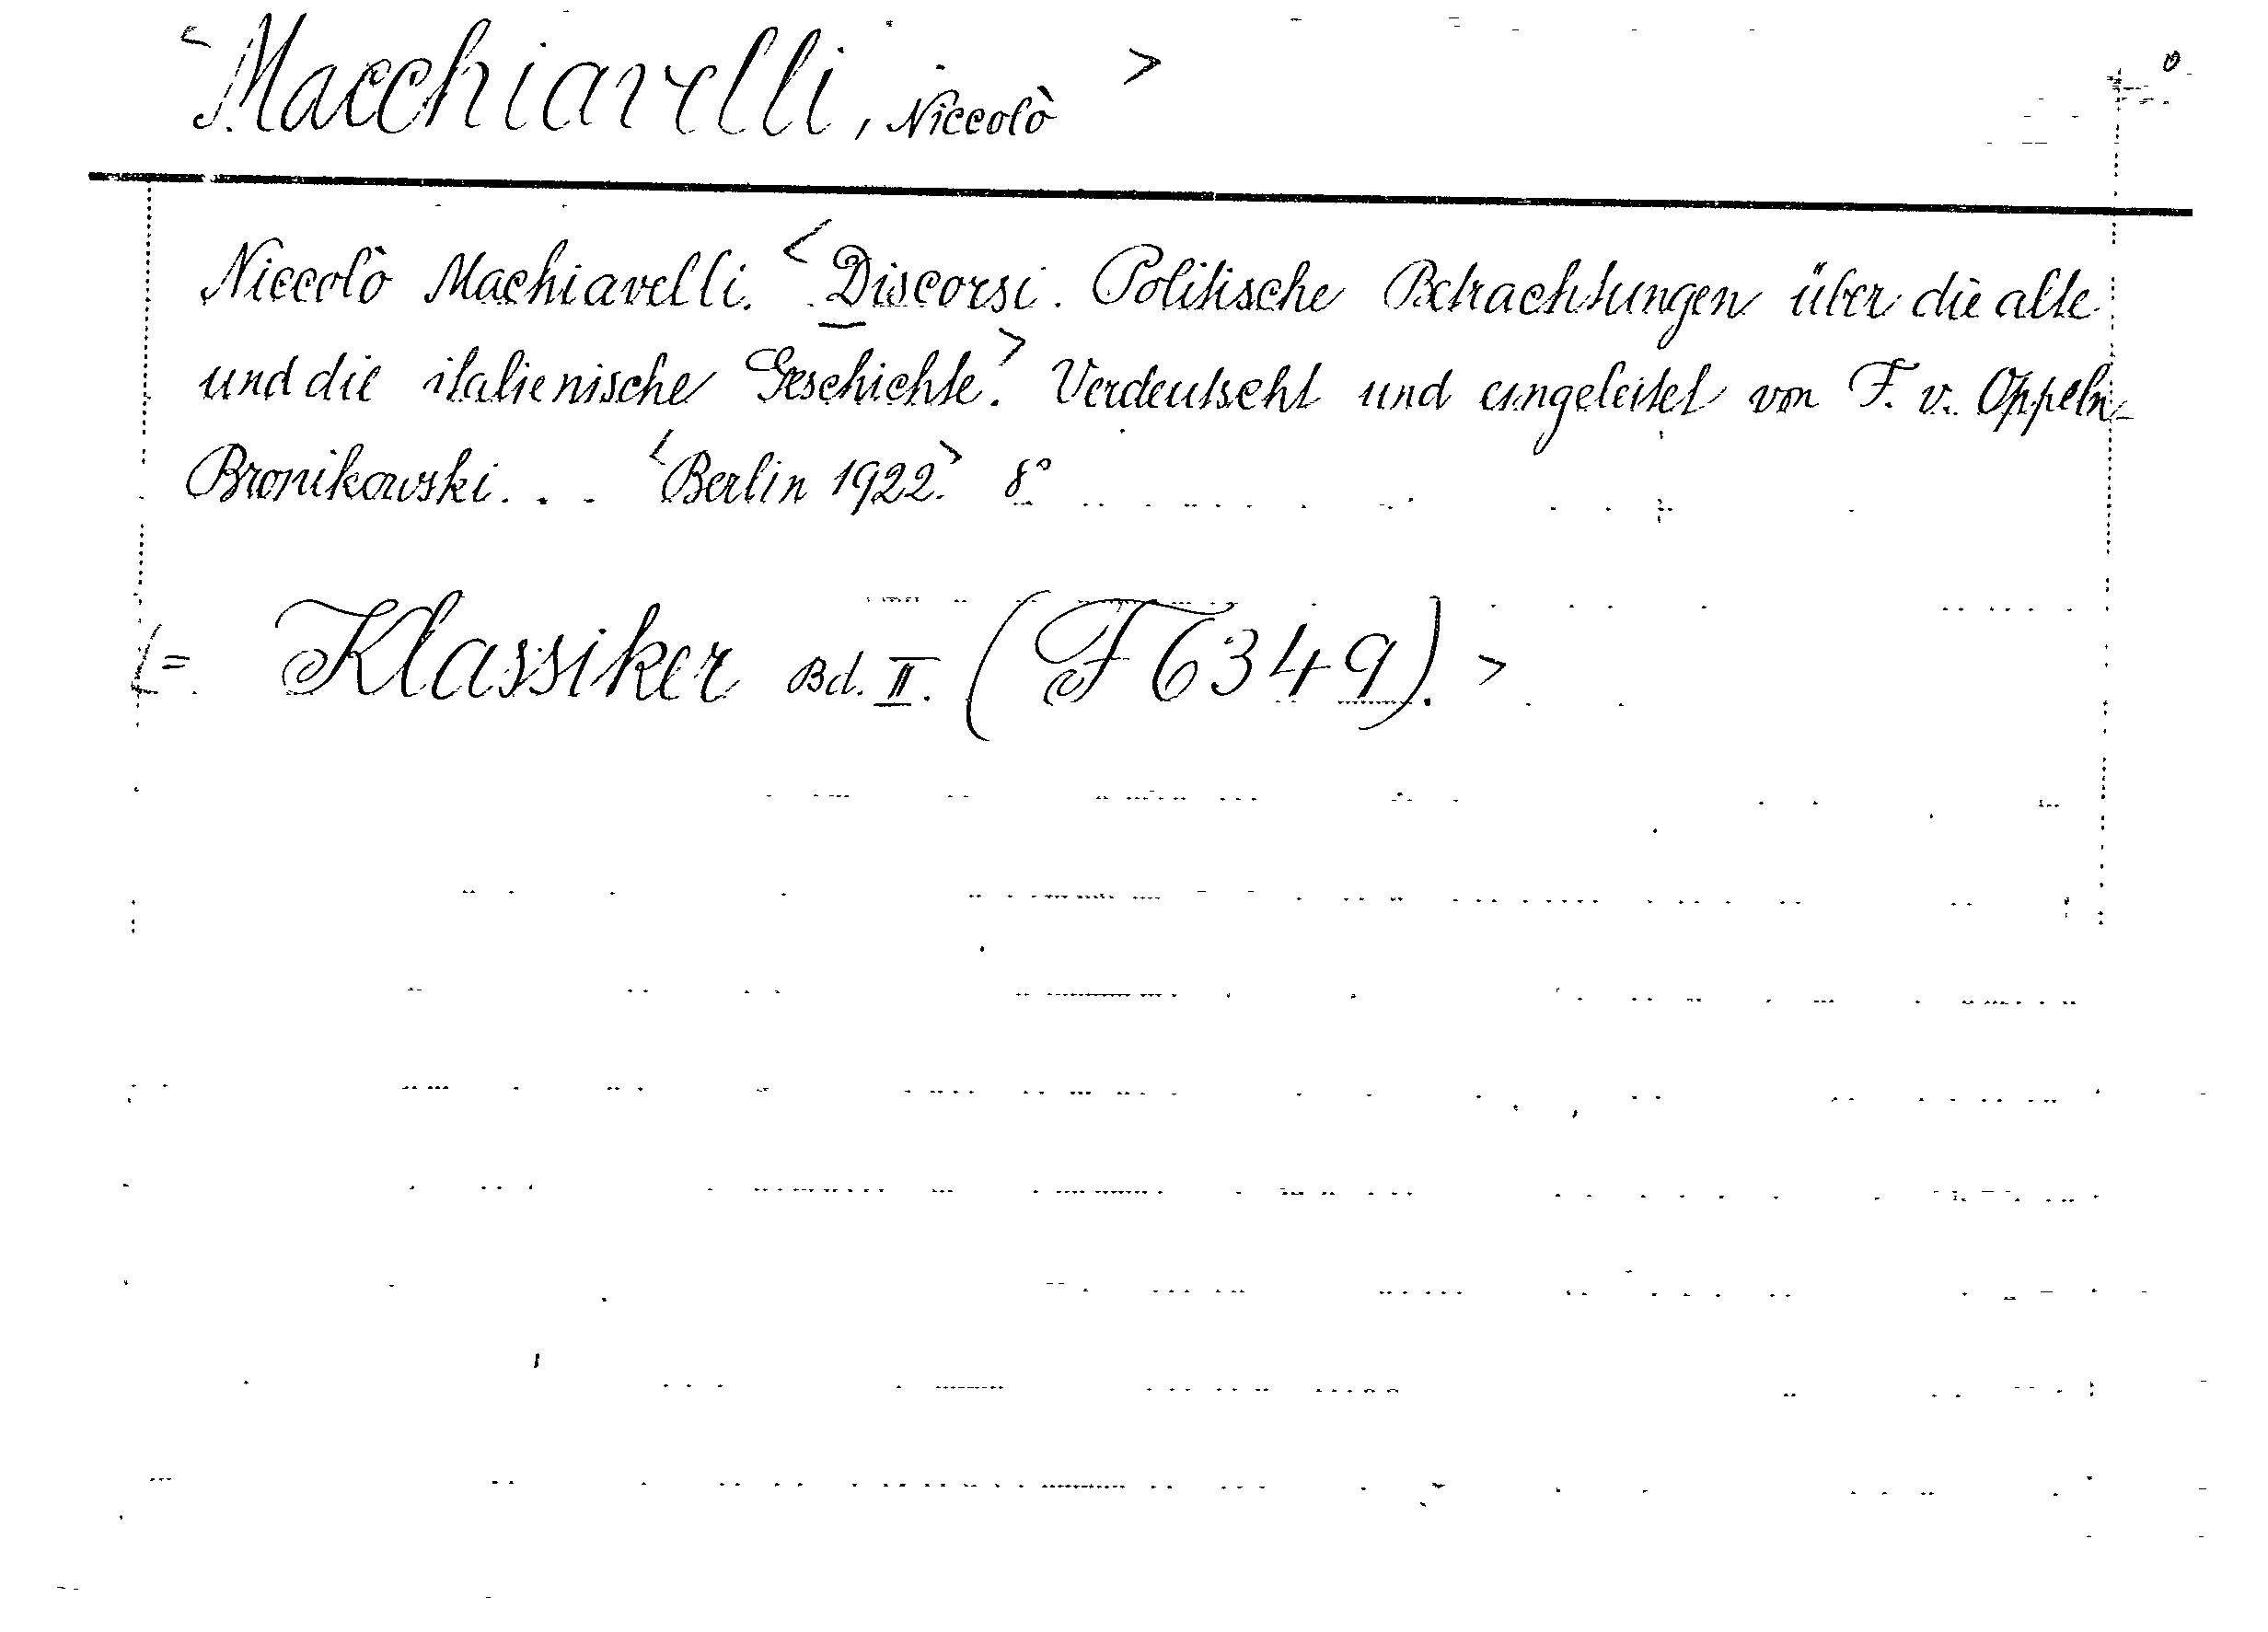 <Macchiavelli, Niccolò>
Niccolò Machiavelli. <Discorsi. Politische Betrachtungen über die alte
und die italienische Geschichte.> Verdeutscht und eingeleitet von F. v. Oppeln-
Bronikowski... <Berlin 1922.> 8°
<= Klassiker Bd. II. (F 6349).>